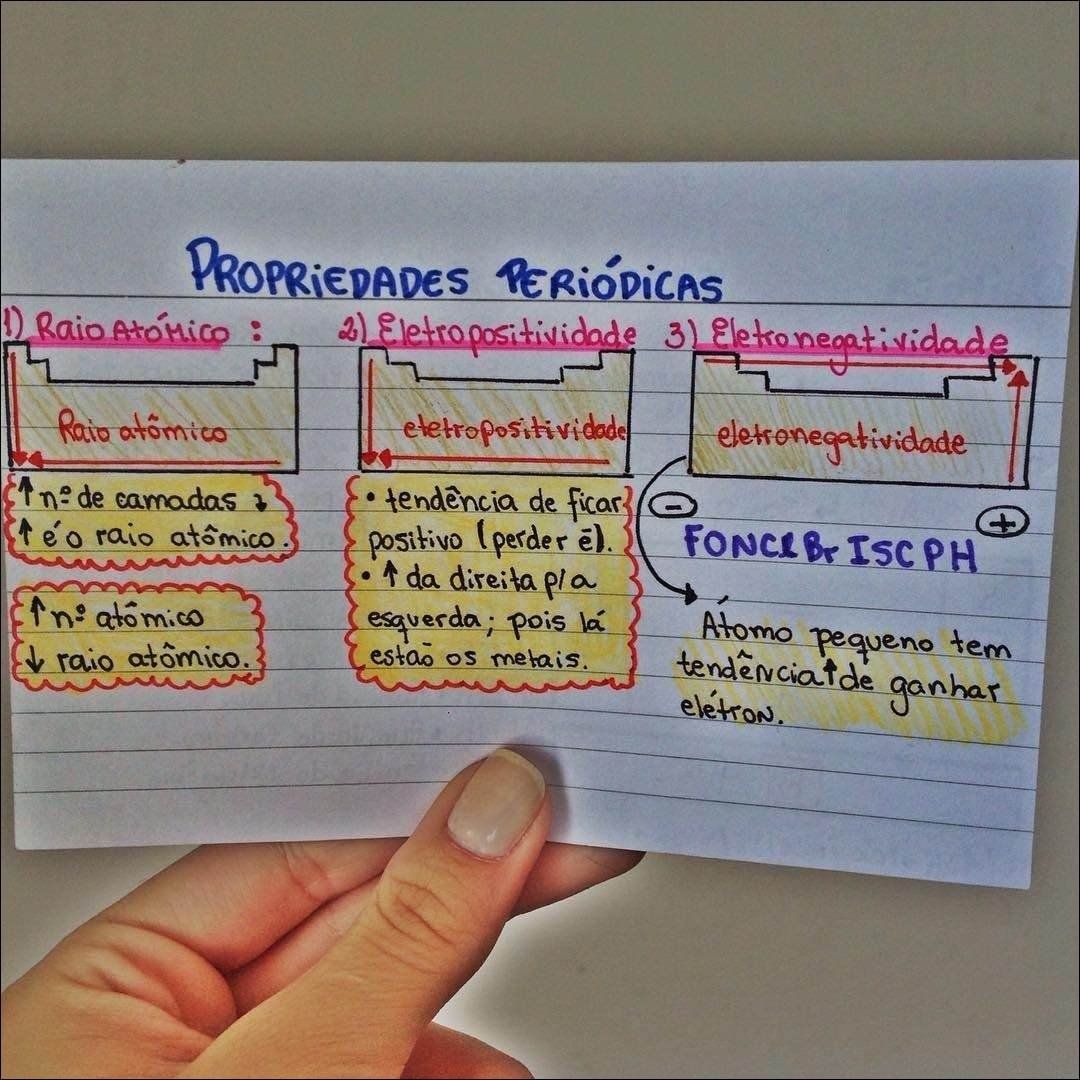 PROPRIEDADES PERIÓDICAS
1) Raio Atômico :
Raio atômico
↑ nº de camadas
↑ é o raio atômico.
↑ nº atômico
↓ raio atômico.
2) Eletropositividade
eletropositividade
• tendência de ficar
positivo (perder ē).
• ↑ da direita p/a
esquerda; pois lá
estão os metais.
3) Eletronegatividade
eletronegatividade
- +
FONClBr ISCPH
Átomo pequeno tem
tendência ↑ de ganhar
elétron.